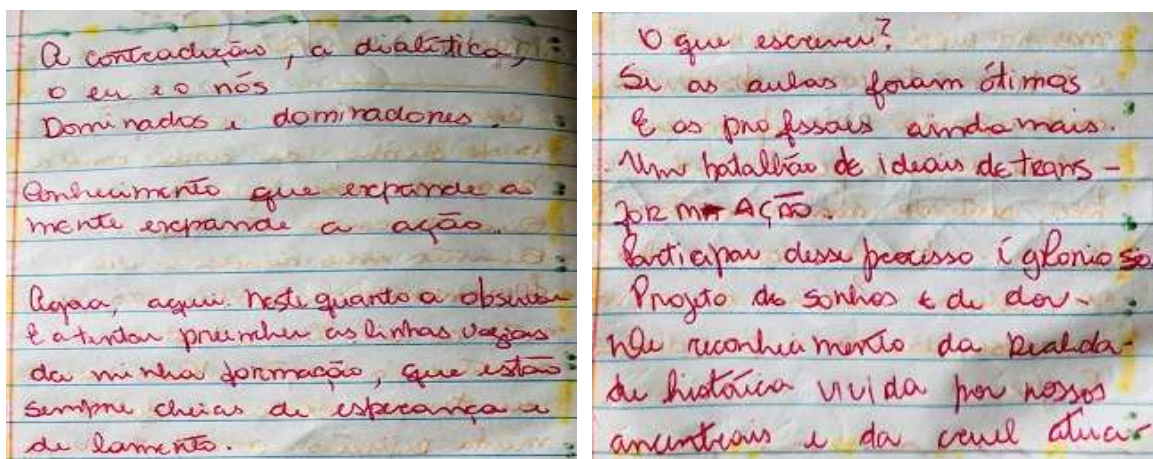 A contradição, a dialética,
o eu e o nós
Dominados e dominadores.
Conhecimento que expande a
mente expande a ação.
Agora, aqui. Neste quarto a observar
E a tentar preencher as linhas vazias
da minha formação, que estão
sempre cheias de esperança e
de lamento.
O que escrever?
Se as aulas foram ótimas
E os professores ainda mais.
Um batalhão de ideais de trans-
FORMAÇÃO.
Participar desse processo é glorioso
Projeto de sonhos e de dor.
No reconhecimento da realida-
de histórica vivida por nossos
ancentrais e da cruel atua-